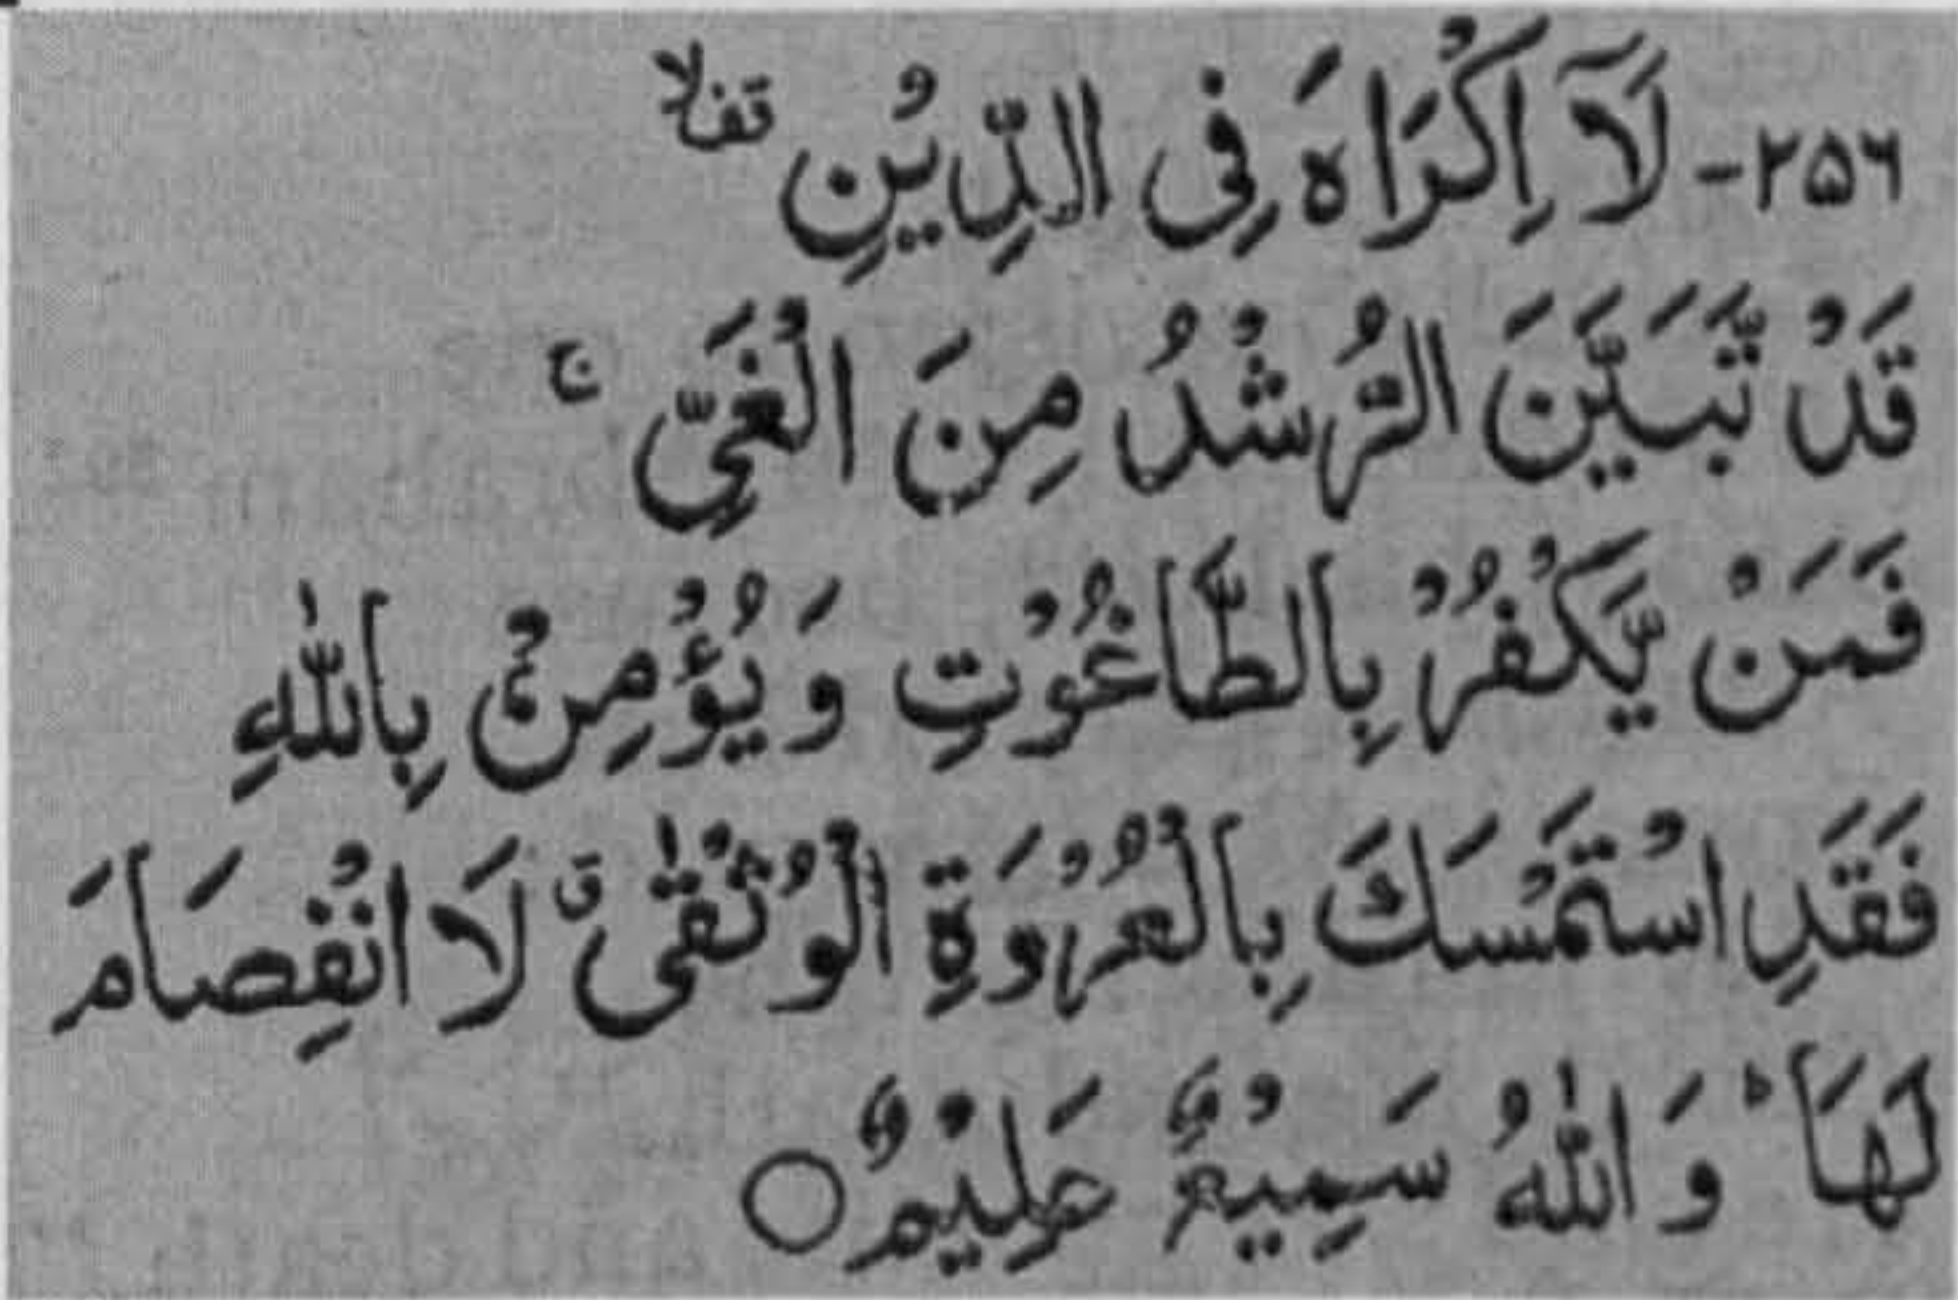 ۲۵۶- لَاۤ اِكْرَاهَ فِی الدِّیْنِ ۟ۙقف
قَدْ تَّبَیَّنَ الرُّشْدُ مِنَ الْغَیِّ ۚ
فَمَنْ یَّكْفُرْ بِالطَّاغُوْتِ وَ یُؤْمِنْۢ بِاللّٰهِ
فَقَدِ اسْتَمْسَكَ بِالْعُرْوَةِ الْوُثْقٰی ۗ لَا انْفِصَامَ
لَهَا ؕ وَ اللّٰهُ سَمِیْعٌ عَلِیْمٌ ○